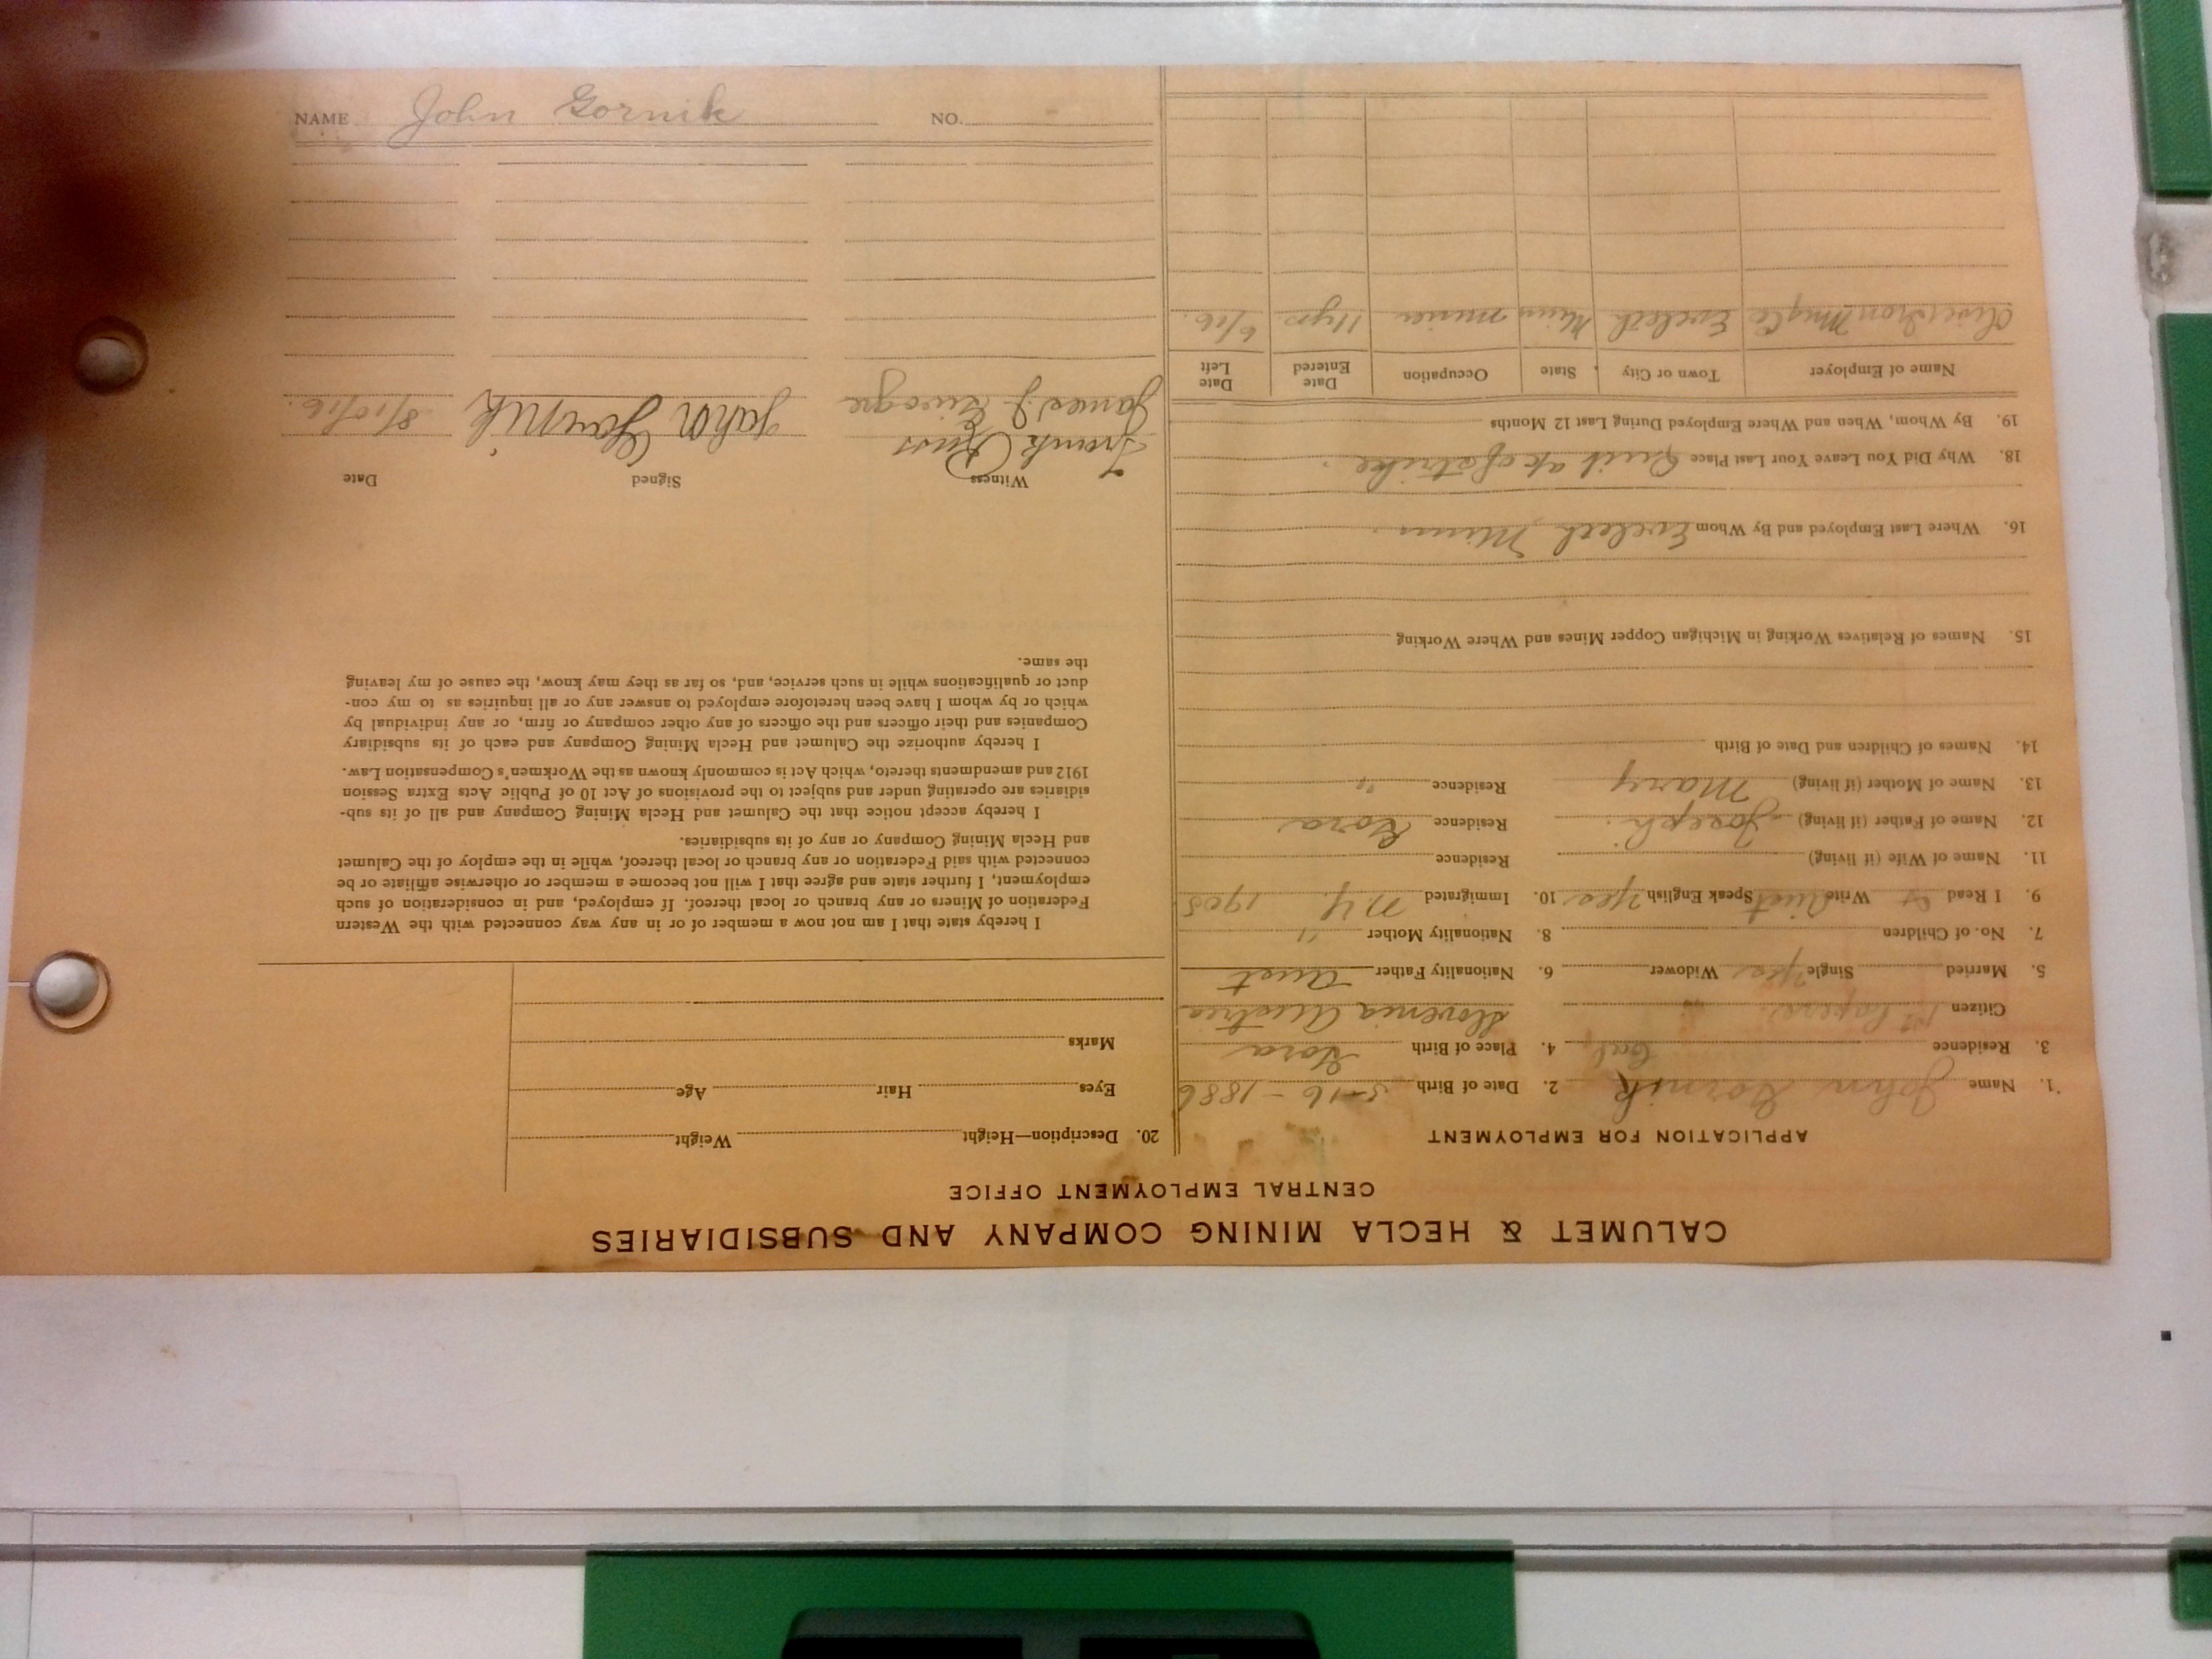 CALUMET & HECLA MINING COMPANY AND SUBSIDIARIES
CENTRAL EMPLOYMENT OFFICE
APPLICATION FOR EMPLOYMENT
1. Name John Gornik 2. Date of Birth 5-16-1886
3. Residence Cal 4. Place of Birth Gora
Citizen 1st Papers Slovenia Austria
5. Married Single Yes Widower 6. Nationality Father Aust
7. No. of Children 8. Nationality Mother "
9. I Read & Write Aust Speak English Yes 10. Immigrated N.Y. 1905
11. Name of Wife (if living) Residence
12. Name of Father (if living) Joseph Residence Gora
13. Name of Mother (if living) Mary Residence "
14. Names of Children and Date of Birth
15. Names of Relatives Working in Michigan Copper Mines and Where Working
16. Where Last Employed and By Whom Eveleth Minn
18. Why Did You Leave Your Last Place Quit a/c of strike.
19. By Whom, When and Where Employed During Last 12 Months
Name of Employer Town or City State Occupation Date Entered Date Left
Oliver Iron Mng Co Eveleth Minn miner 11 yrs 6/16.
20. Description—Height Weight
Eyes Hair Age
Marks
I hereby state that I am not now a member of or in any way connected with the Western
Federation of Miners or any branch or local thereof. If employed, and in consideration of such
employment, I further state and agree that I will not become a member or otherwise affiliate or be
connected with said Federation or any branch or local thereof, while in the employ of the Calumet
and Hecla Mining Company or any of its subsidiaries.
I hereby accept notice that the Calumet and Hecla Mining Company and all of its sub-
sidiaries are operating under and subject to the provisions of Act 10 of Public Acts Extra Session
1912 and amendments thereto, which Act is commonly known as the Workmen's Compensation Law.
I hereby authorize the Calumet and Hecla Mining Company and each of its subsidiary
Companies and their officers and the officers of any other company or firm, or any individual by
which or by whom I have been heretofore employed to answer any or all inquiries as to my con-
duct or qualifications while in such service, and, so far as they may know, the cause of my leaving
the same.
Witness Signed Date
Frank
James J. John Gornik 8/10/16.
NAME John Gornik NO.